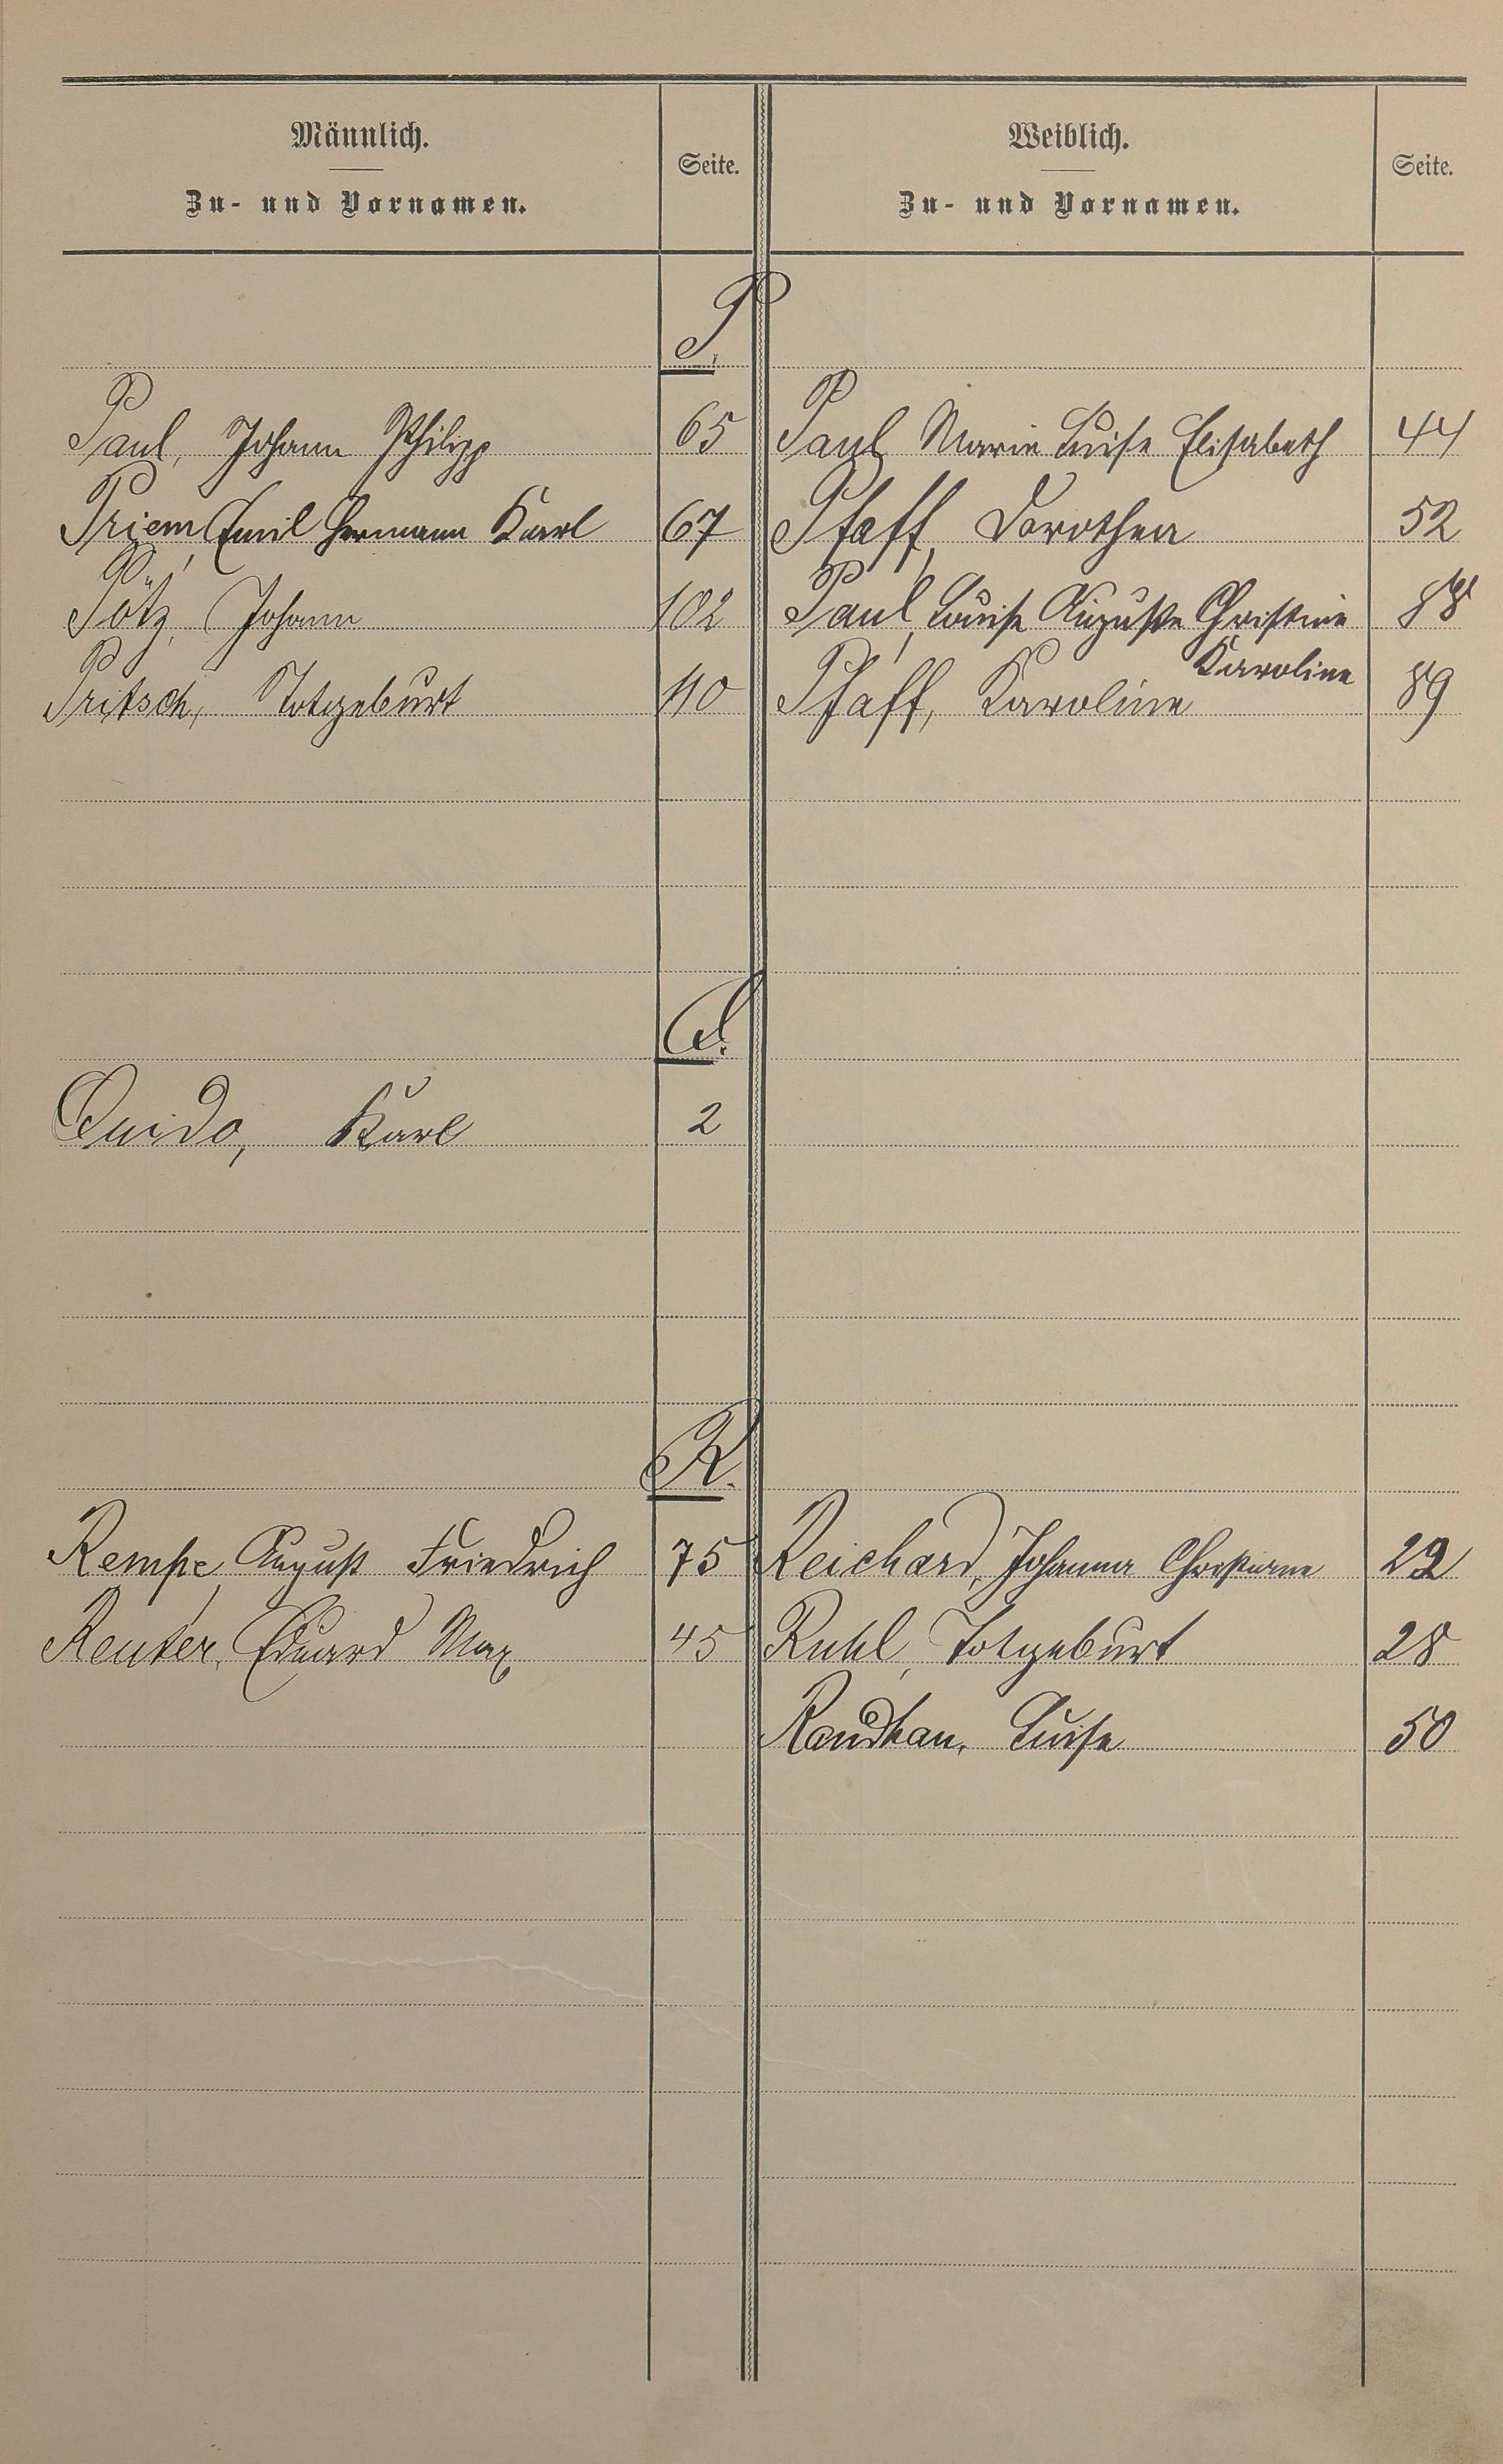 Männlich.
Zu- und Vornamen.
Seite.
Weiblich.
Zu- und Vornamen.
Seite.
P.
Paul, Johann Philipp 65 Paul, Marie Luise Elisabeth 44
Priem, Emil Hermann Karl 67 Pfaff, Dorothea 52
Pötz, Johann 102 Paul, Louise Auguste Christine 88
Karoline
Pritsch, Totgeburt 110 Pfaff, Karoline 89
Q.
Quido, Karl 2
R.
Rempe, August Friedrich 75 Reichard, Johanna Christiane 22
Reuter, Eduard Max 45 Ruhl, Totgeburt 28
Luise 50